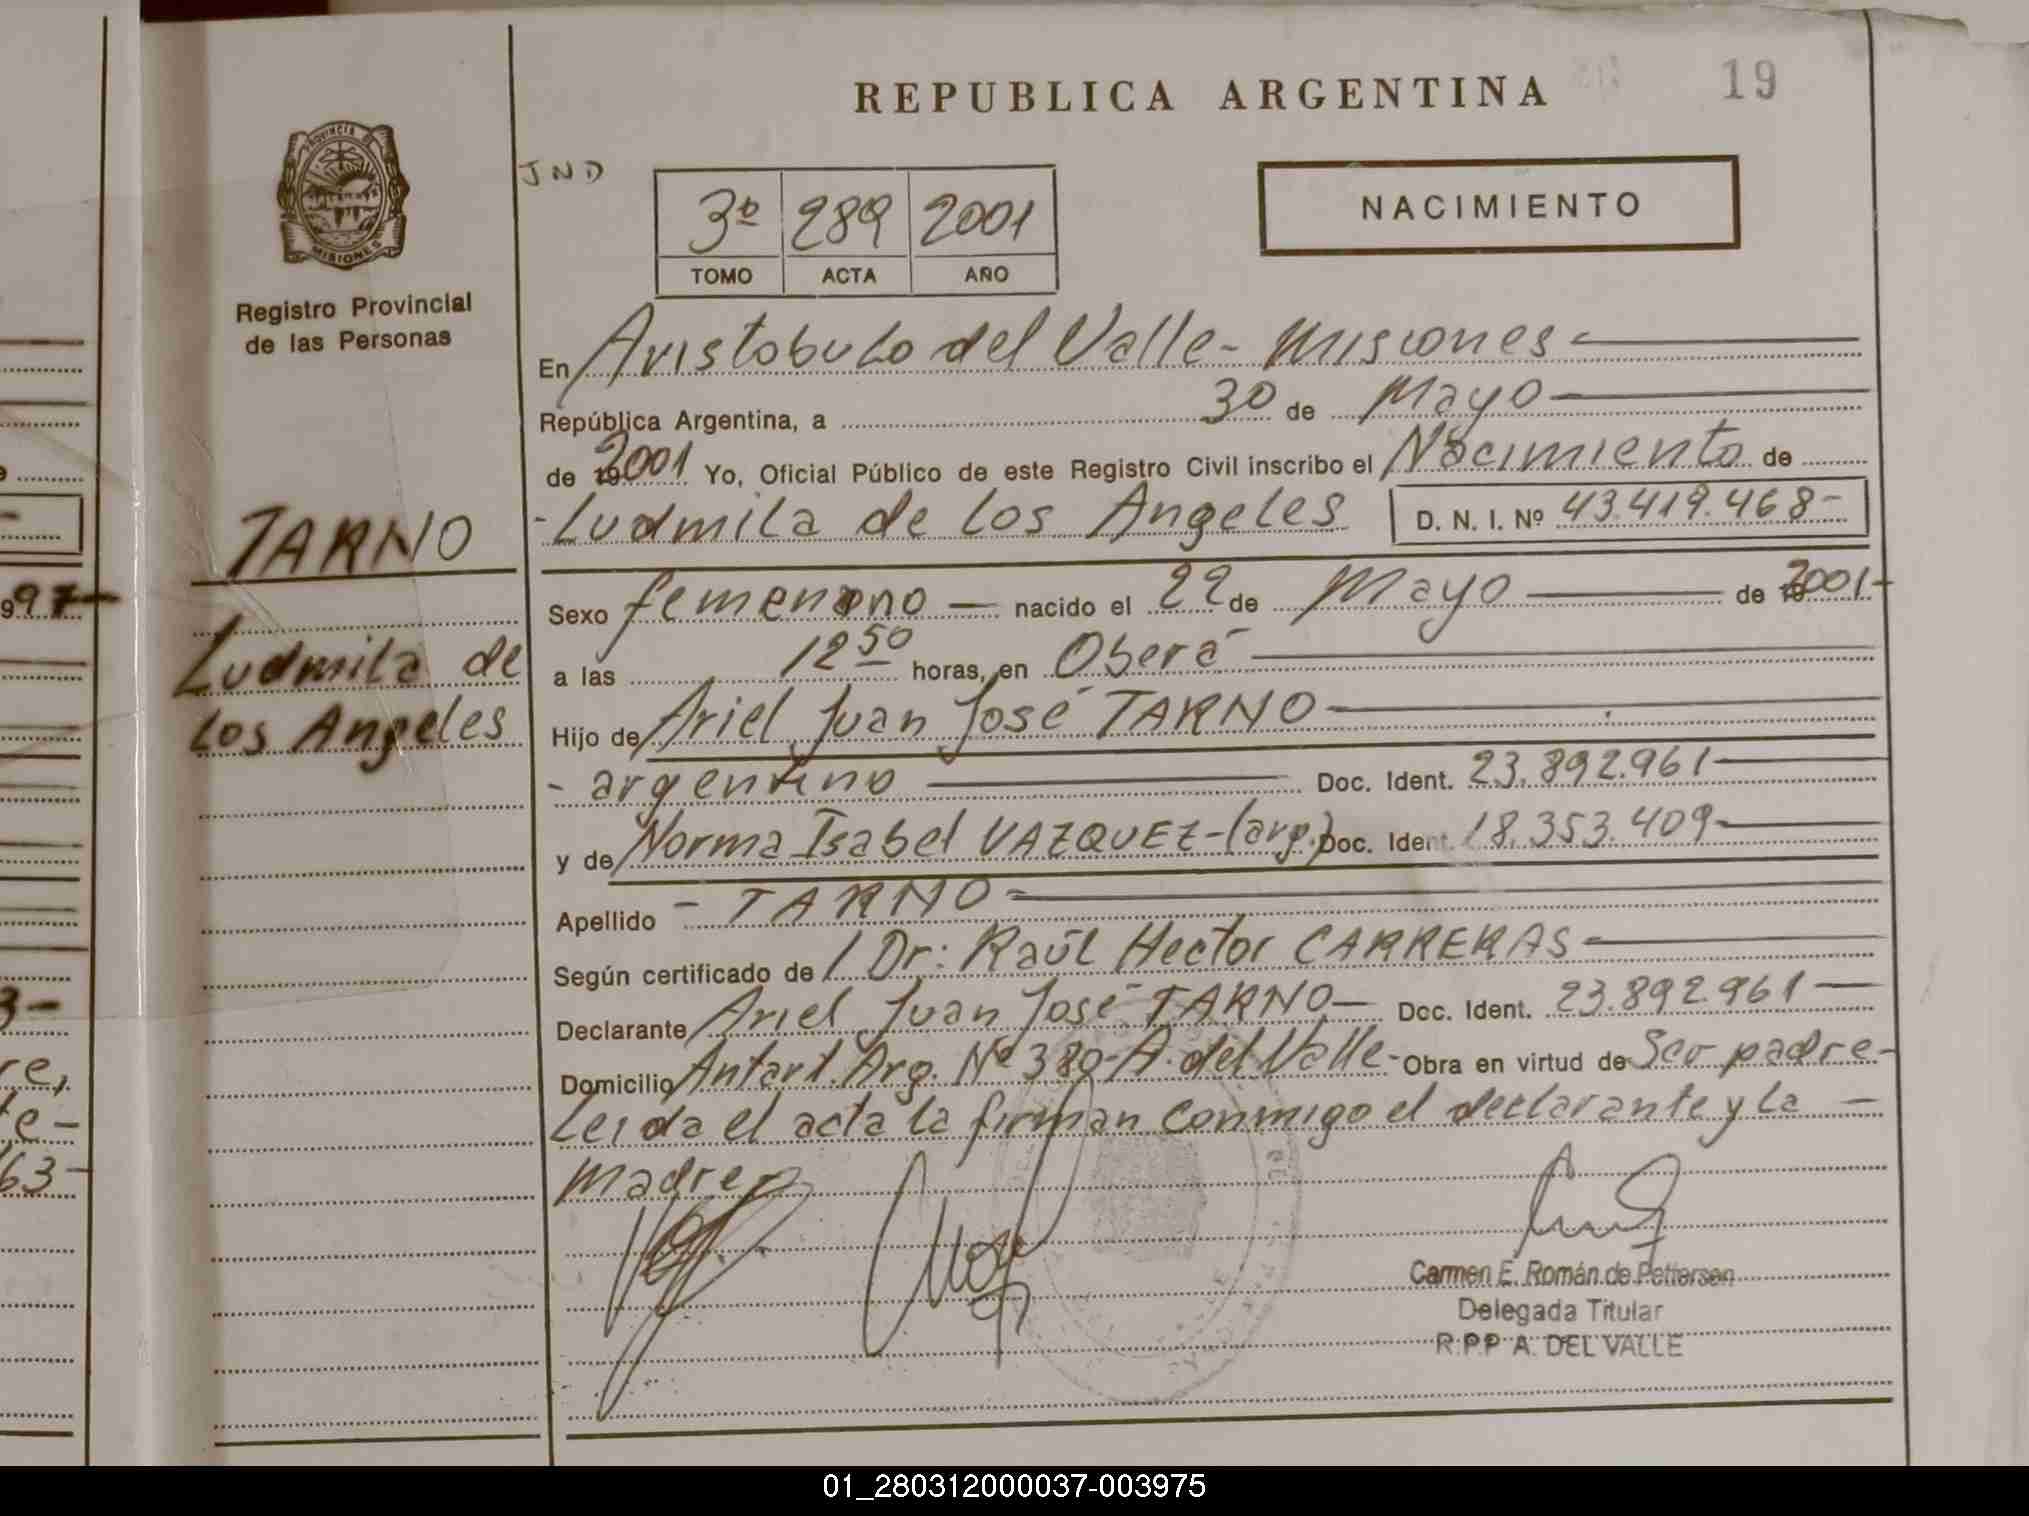 REPUBLICA ARGENTINA
19
PROVINCIA DE
MISIONES
Registro Provincial
de las Personas
JND
3º 289 2001
TOMO ACTA AÑO
NACIMIENTO
En Aristobulo del Valle - Misiones
República Argentina, a 30 de Mayo
de 2001 Yo, Oficial Público de este Registro Civil inscribo el Nacimiento de
- Ludmila de Los Angeles D. N. I. Nº 43.419.468-
TARNO
Ludmila de
Los Angeles
Sexo femenino — nacido el 22 de Mayo de 2001-
a las 12 50 horas, en Oberá
Hijo de Ariel Juan José TARNO
- argentino Doc. Ident. 23.892.961
y de Norma Isabel VAZQUEZ-(arg.) Doc. Ident. 18.353.409-
Apellido - TARNO
Según certificado de Dr: Raúl Hector CARRERAS
Declarante Ariel Juan José TARNO- Doc. Ident. 23.892.961
Domicilio Antart. Arg. Nº 380-A. del Valle- Obra en virtud de Ser padre-
Leida el acta la firman conmigo el declarante y la —
madre
Carmen E. Román de Pettersen
Delegada Titular
R.P.P A. DEL VALLE
997-
3-
re,
te-
63-
01_280312000037-003975